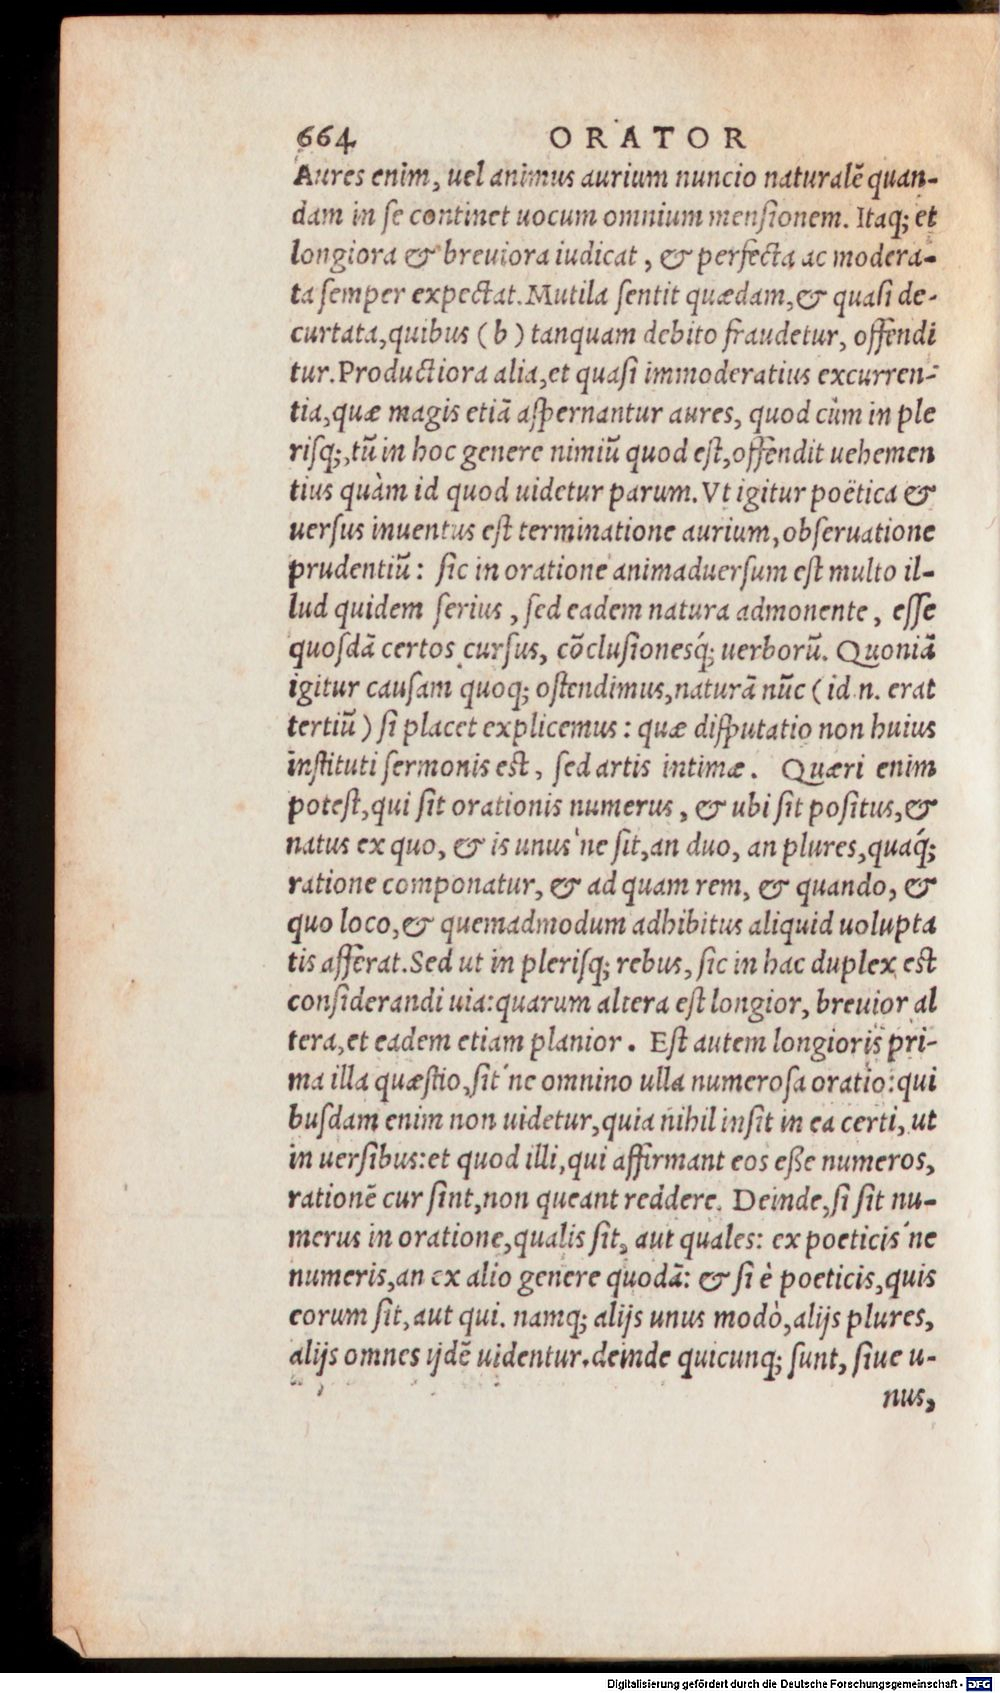 664 ORATOR
Aures enim, uel animus aurium nuncio naturalẽ quan-
dam in se continet uocum omnium mensionem. Itaq; et
longiora & breuiora iudicat, & perfecta ac modera-
ta semper expectat. Mutila sentit quædam, & quasi de-
curtata, quibus (b) tanquam debito fraudetur, offendi
tur. Productiora alia, et quasi immoderatius excurren-
tia, quæ magis etiã aspernantur aures, quod cùm in ple
risq;, tũ in hoc genere nimiũ quod est, offendit uehemen
tius quàm id quod uidetur parum. Vt igitur poëtica &
uersus inuentus est terminatione aurium, obseruatione
prudentiũ: sic in oratione animaduersum est multo il-
lud quidem serius, sed eadem natura admonente, esse
quosdã certos cursus, cõclusionesq́; uerborũ. Quoniã
igitur causam quoq; ostendimus, naturã nũc (id.n. erat
tertiũ) si placet explicemus: quæ disputatio non huius
instituti sermonis est, sed artis intimæ. Quæri enim
potest, qui sit orationis numerus, & ubi sit positus, &
natus ex quo, & is unus'ne sit, an duo, an plures, quaq́;
ratione componatur, & ad quam rem, & quando, &
quo loco, & quemadmodum adhibitus aliquid uolupta
tis afferat. Sed ut in plerisq; rebus, sic in hac duplex est
considerandi uia: quarum altera est longior, breuior al
tera, et eadem etiam planior. Est autem longioris pri-
ma illa quæstio, sit'ne omnino ulla numerosa oratio: qui
busdam enim non uidetur, quia nihil insit in ea certi, ut
in uersibus: et quod illi, qui affirmant eos eße numeros,
rationẽ cur sint, non queant reddere. Deinde, si sit nu-
merus in oratione, qualis sit, aut quales: ex poeticis'ne
numeris, an ex alio genere quodã: & si è poeticis, quis
eorum sit, aut qui. namq; alijs unus modò, alijs plures,
alijs omnes ijdẽ uidentur. deinde quicunq; sunt, siue u-
nus,
Digitalisierung gefördert durch die Deutsche Forschungsgemeinschaft - DFG